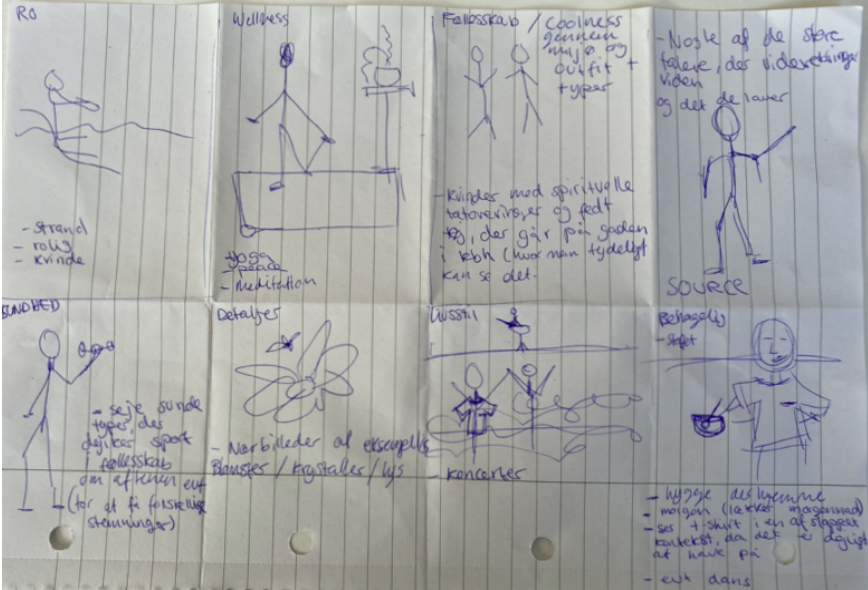 RO
- strand
- rolig
- kvinde
Wellness
- yoga
- peace
- meditation
Fællesskab / Coolness
gennem
miljø og
outfit +
typer
- kvinder med spirituelle
tatoveringer og fedt
tøj, der går på gaden
i kbh (hvor man tydeligt
kan se det.
- Nogle af de store
talere, der videre
viden
og det de laver
SOURCE
SUNDHED
- seje sunde
typer, der
dyrker sport
i fællesskab
om aftenen evt
(for at få forskellige
stemninger)
Detaljer
- Nærbilleder af eksempelvis
Blomster / krystaller / lys
Livsstil
- koncerter
Behagelig
- stoffet
- hygge derhjemme
- morgen (lækker morgenmad)
- ses t-shirt i en afslappet
kontekst, da det er dejligt
at have på
- evt dans